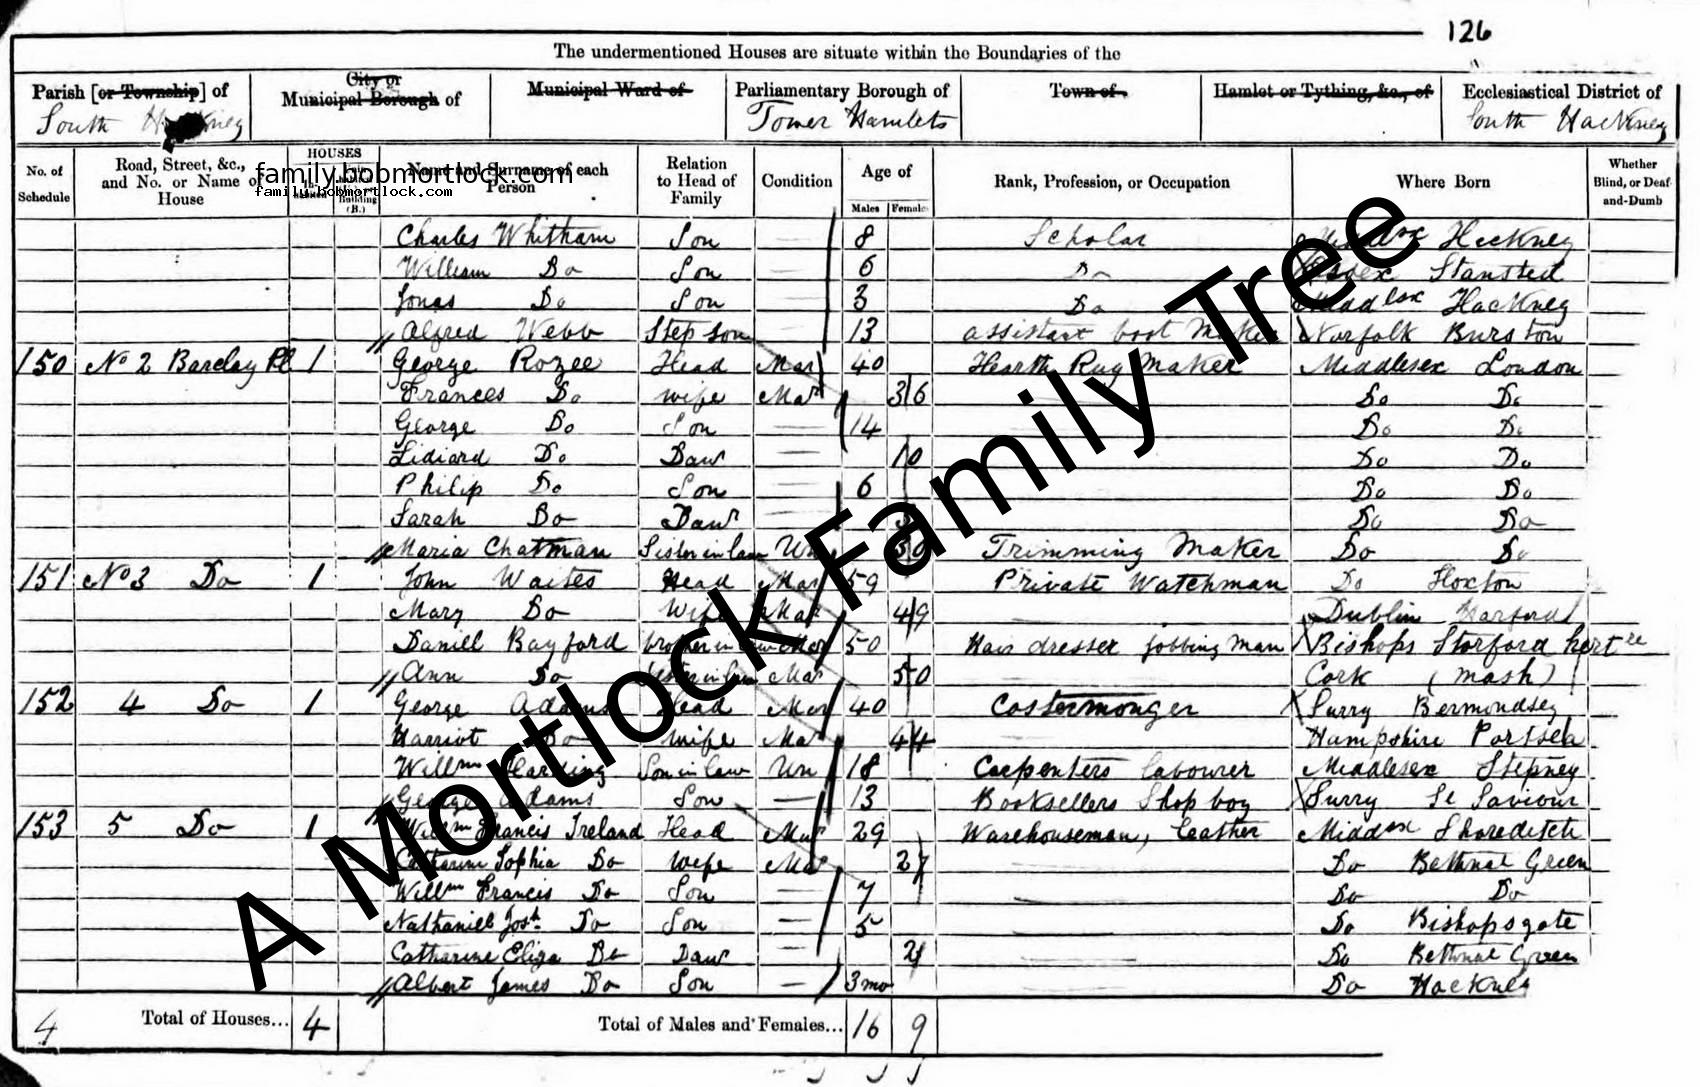 126
The undermentioned Houses are situate within the Boundaries of the
Parish [or Township] of
South Hackney
City or
Municipal Borough of
Municipal Ward of
Parliamentary Borough of
Tower Hamlets
Town of
Hamlet or Tything, &c., of
Ecclesiastical District of
South Hackney
No. of Schedule
Road, Street, &c., and No. or Name of House
HOUSES
Building (B.)
Name and Surname of each Person
family.bobmortlock.com
family.bobmortlock.com
Relation to Head of Family
Condition
Age of
Males Females
Rank, Profession, or Occupation
Where Born
Whether Blind, or Deaf-and-Dumb
Charles Whitham Son 8 Scholar Middsx Hackney
William Do Son 6 Do Essex Stansted
Jonas Do Son 3 Do Middsx Hackney
Alfred Webb Step son 13 assistant boot maker Norfolk Burston
150 No 2 Barclay Pl 1 George Rozee Head Mar 40 Hearth Rug Maker Middlesex London
Frances Do wife Mar 36 Do Do
George Do Son 14 Do Do
Lidiard Do Daur 10 Do Do
Philip Do Son 6 Do Do
Sarah Do Daur 3 Do Do
Maria Chatman Sister in law Un 30 Trimming Maker Do Do
151 No 3 Do 1 John Waites Head Mar 59 Private Watchman Do Hoxton
Mary Do Wife Mar 49 Dublin
Daniell Bayford brother in law Mar 50 Hair dresser jobbing man Bishops Storford
Ann Do sister in law Mar 50 Cork
152 4 Do 1 George Adams Head Mar 40 Costermonger Surry Bermondsey
Harriot Do wife Mar 44 Hampshire Portsea
Willm Harding Son in law Un 18 Carpenters labourer Middlesex Stepney
George Adams Son 13 Booksellers Shop boy Surry St Saviour
153 5 Do 1 Willm Francis Ireland Head Mar 29 Warehouseman, Leather Middsx Shoreditch
Catharine Sophia Do wife Mar 27 Do Bethnal Green
Willm Francis Do Son 7 Do Do
Nathaniell Josh. Do Son 5 Do Bishopsgate
Catharine Eliza Do Daur 2 Do Bethnal Green
Albert James Do Son 3 mo Do Hackney
4 Total of Houses... 4 Total of Males and Females... 16 9
A Mortlock Family Tree